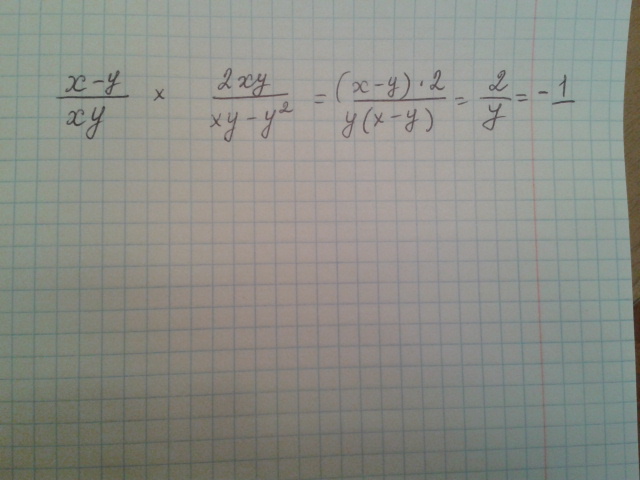 (x-y)/(xy) × (2xy)/(xy-y²) = ((x-y)·2)/(y(x-y)) = 2/y = -1